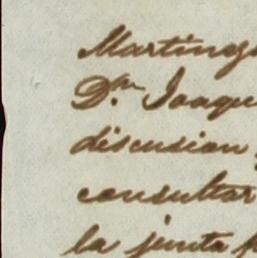 Martinez
Dn. Joaqu
discusion
consultar
la junta p